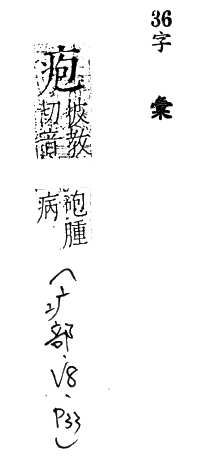 36字 彙
疱
披教
切音
腫
病
(疒部、V8、P33)